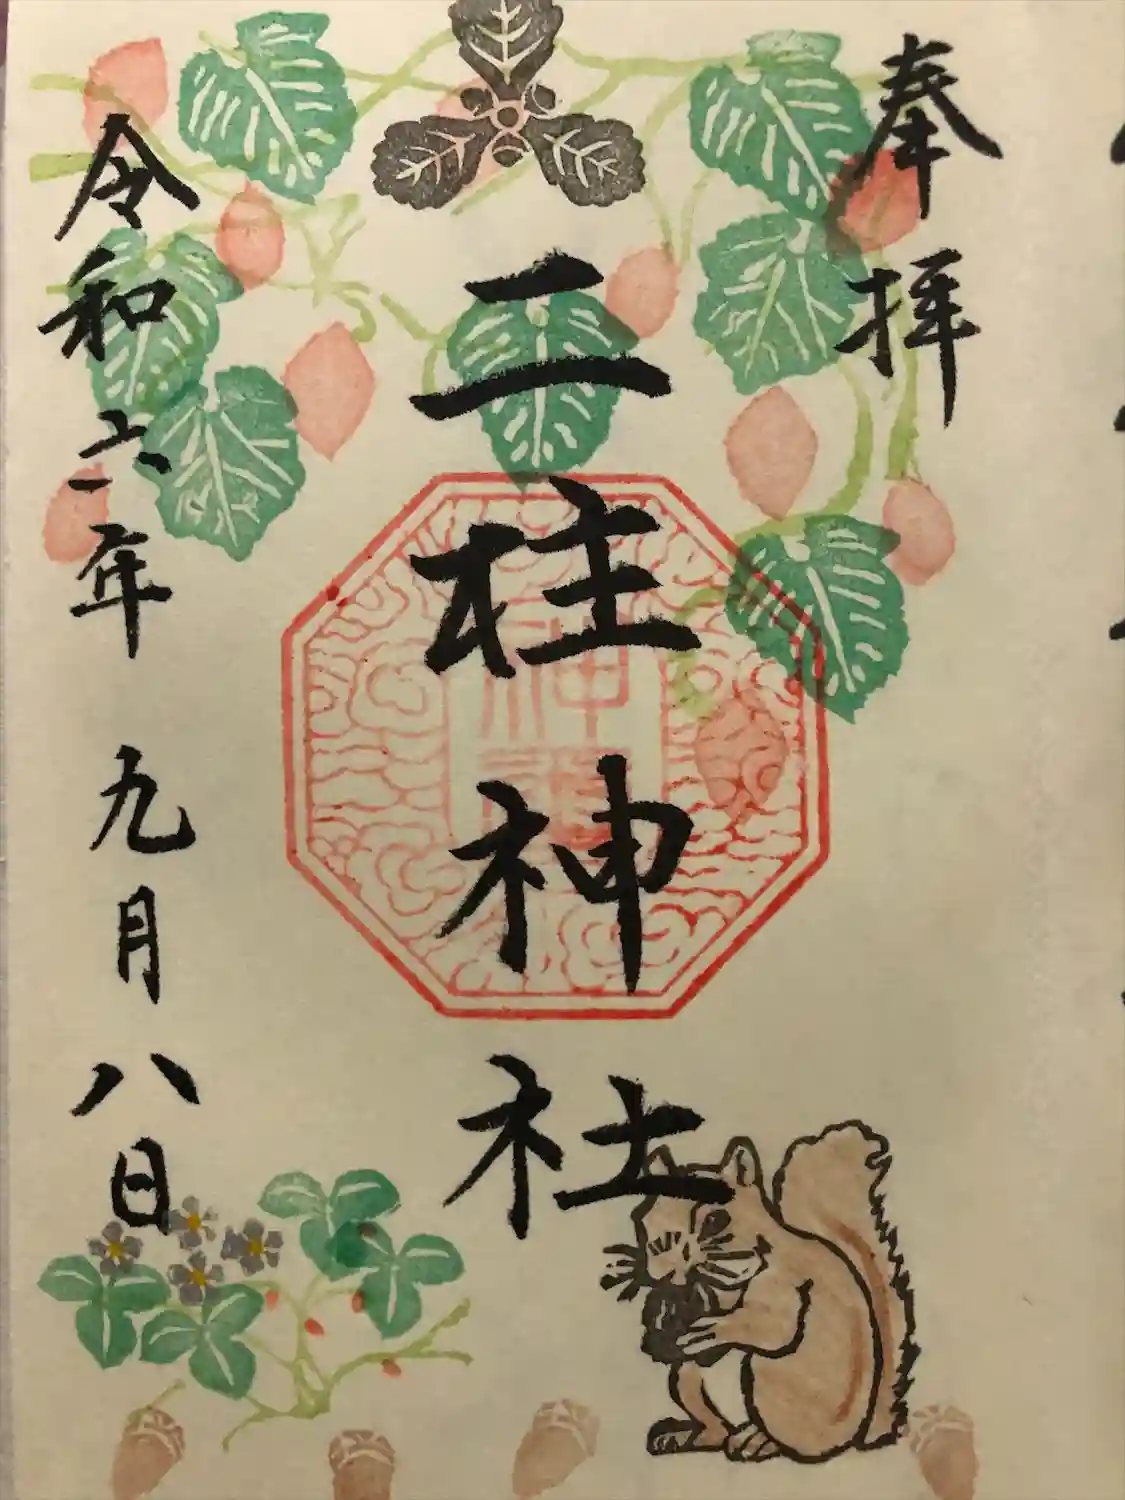 奉拝
二柱神社
令和六年九月八日